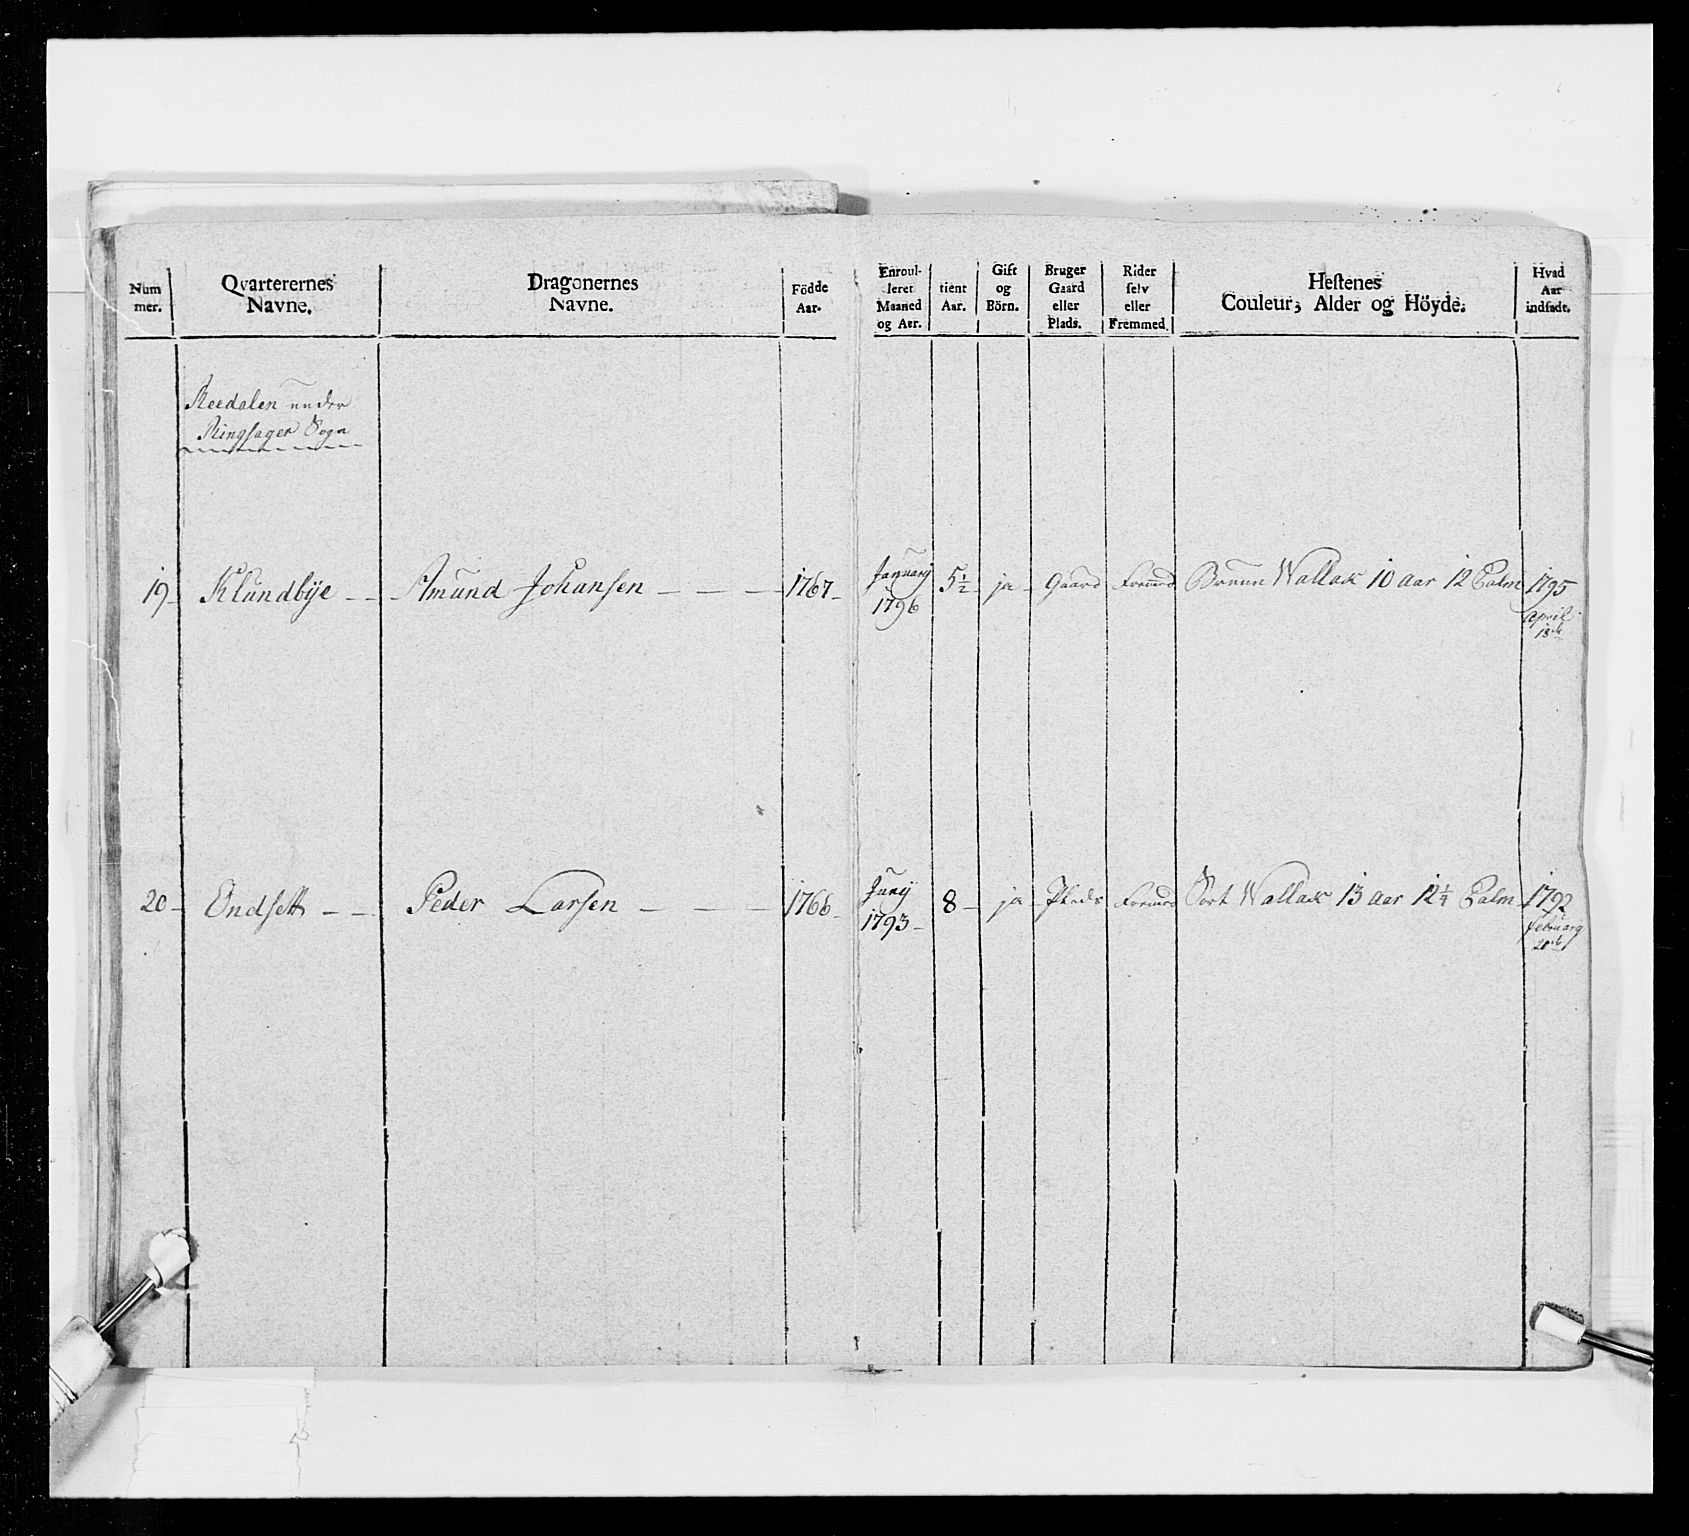 Num
mer.
Qvarterernes
Navne.
Dragonernes
Navne.
Födde
Aar.
Enroul-
leret
Maaned
og Aar.
tient
Aar.
Gift
og
Börn.
Bruger
Gaard
eller
Plads.
Rider
selv
eller
Fremmed.
Hestenes
Couleur, Alder og Höyde.
Hvad
Aar
indsadt.
Reedalen under
Ringsager Sogn
19 Klundbÿe Amund Johansen 1767 January
1796 5 1/2 ja Gaard Fremd Bruun Wallak 10 aar 12 Palm 1795
April
Endsett
20 Peder Larsen 1766 Junÿ
1793 8 ja Plads Fremd Sort Wallak 13 aar 12 1/4 Palm 1792
february